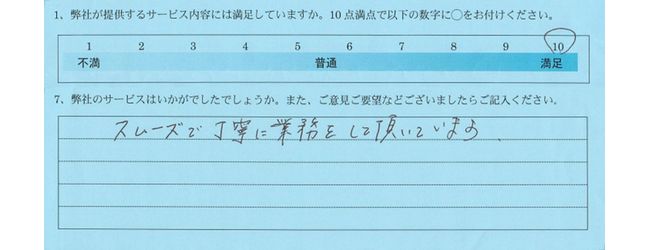 1、弊社が提供するサービス内容には満足していますか。10点満点で以下の数字に○をお付けください。
1 2 3 4 5 6 7 8 9 10
不満 普通 満足
7、弊社のサービスはいかがでしたでしょうか。また、ご意見ご要望などございましたらご記入ください。
スムーズで丁寧に業務をして頂いています。